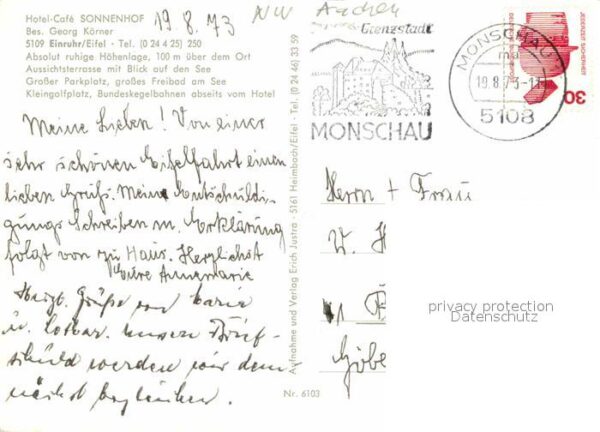 Hotel-Café SONNENHOF
Bes. Georg Körner
5109 Einruhr/Eifel - Tel. (0 24 4 25) 250
Absolut ruhige Höhenlage, 100 m über dem Ort
Aussichtsterrasse mit Blick auf den See
Großer Parkplatz, großes Freibad am See
Kleingolfplatz, Bundeskegelbahnen abseits vom Hotel
19.8.73
NW Aachen
Meine Lieben! Von einer
sehr schönen Eifelfahrt einen
lieben Gruß. Meine Entschuldi-
gungs Schreiben m. Erklärung
folgt von zu Haus. Herzlichst
Eure Annemarie
Herzl. Grüße von Maria
u. Lothar. Unsere Brief-
schuld werden wir dem-
nächst begleichen.
Aufnahme und Verlag Erich Justra - 5161 Heimbach/Eifel - Tel. (0 24 46) 33 59
Nr. 6103
Grenzstadt
MONSCHAU
MONSCHAU
ma
19.8.73-11
5108
JEDERZEIT SICHERHEIT
DEUTSCHE BUNDESPOST
30
Herrn + Frau
W. H
Göbe
privacy protection
Datenschutz